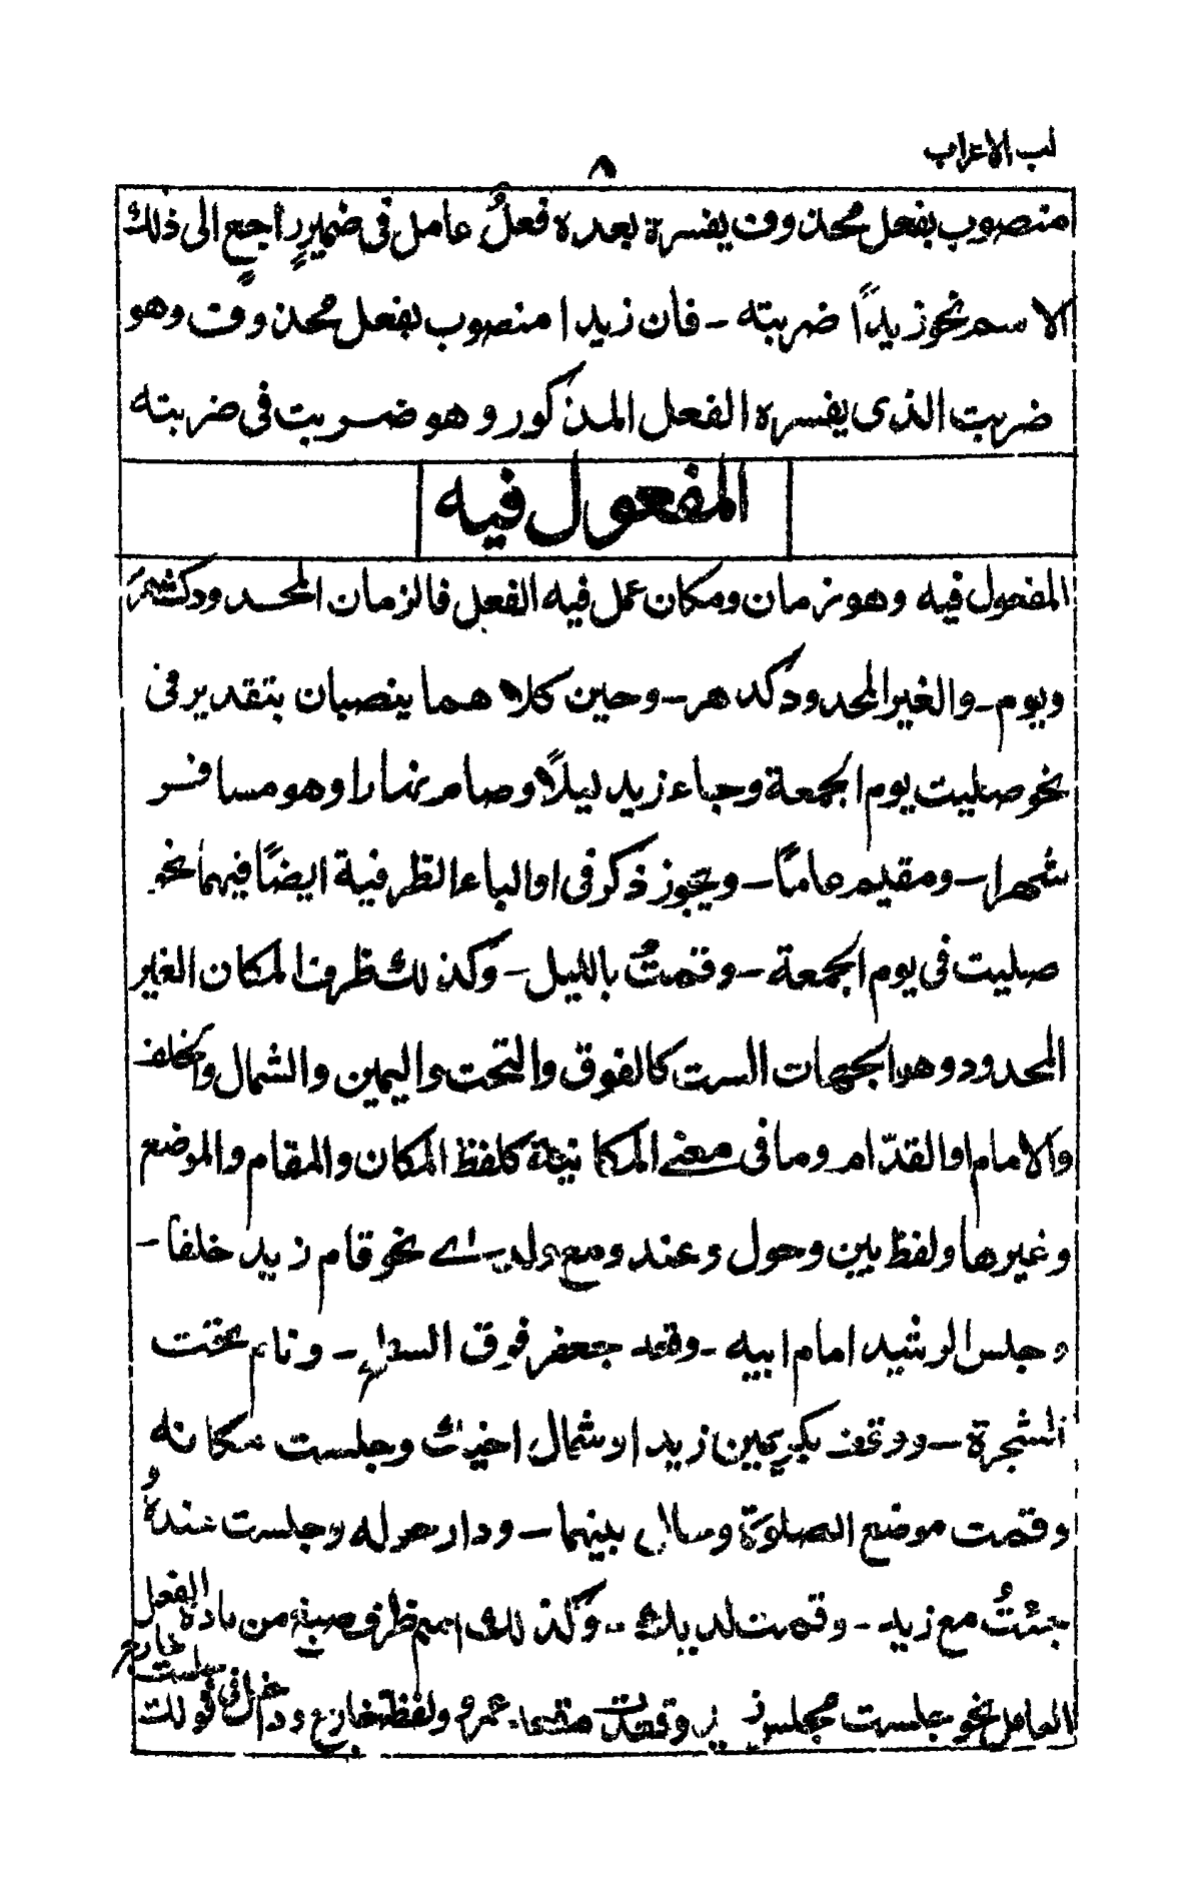 لب الاعراب
٨
منصوب بفعل محذوف يفسره بعده فعلُ عامل فى ضميرٍ راجعٍ الى ذلك
الاسم نحو زيداً ضربته - فان زيدا منصوب بفعل محذوف وهو
ضربت الذى يفسره الفعل المذكور وهو ضربت فى ضربته
المفعول فيه
المفعول فيه وهو زمان ومكان عمل فيه الفعل فالزمان المحدود كشهر
ويوم - والغير المحدود كدهر - وحين كلاهما ينصبان بتقدير فى
نحو صليت يوم الجمعة وجاء زيد ليلاً وصام نهارا وهو مسافر
شهرا - ومقيم عاماً - ويجوز ذكر فى او الباء الظرفية ايضاً فيهما نحو
صليت فى يوم الجمعة - وقمتُ بالليل - وكذلك ظرف المكان الغير
المحدود وهو الجهات الست كالفوق والتحت واليمين والشمال والخلف
والامام او القدّام وما فى معنى المكانية كلفظ المكان والمقام والموضع
وغيرها ولفظ بين وحول وعند ومع ولدى نحو قام زيد خلفا -
وجلس الرشيد امام ابيه - وقعد جعفر فوق السطح - ونام تحت
الشجرة - ووقف بكر يمين زيد او شمال اخيك وجلست مكانه
وقمت موضع الصلوة وسال بينهما - ودار حوله وجلست عندهُ و
جئتُ مع زيد - وقمت لديك - وكذلك اسم ظرف صيغ من مادة الفعل
العامل نحو جلست مجلس زيد وقعدت مقعد عمرو ولفظة خارج وداخل فى قولك
جلست خارج